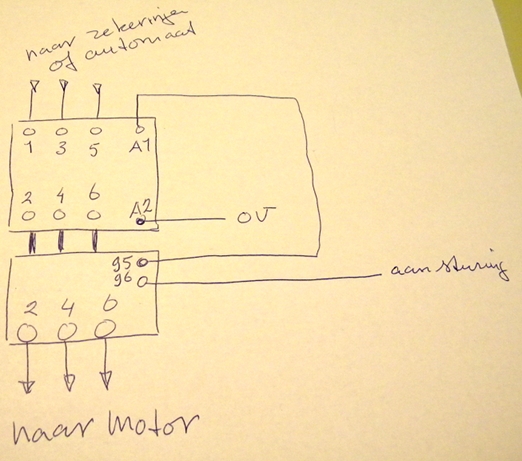 naar zekeringen
of automaat
1 3 5 A1
2 4 6 A2
0V
95
96
aansturing
2 4 6
naar motor